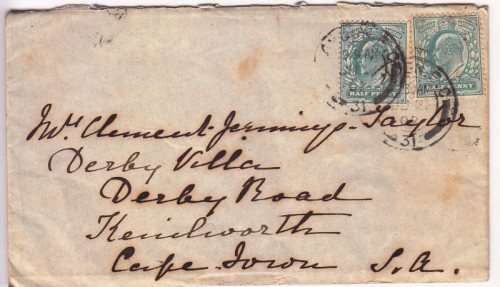 HALF PENNY
31
31
Mrs Clement Jennings-Taylor
Derby Villa
Derby Road
Kenilworth
Cape Town S.A.